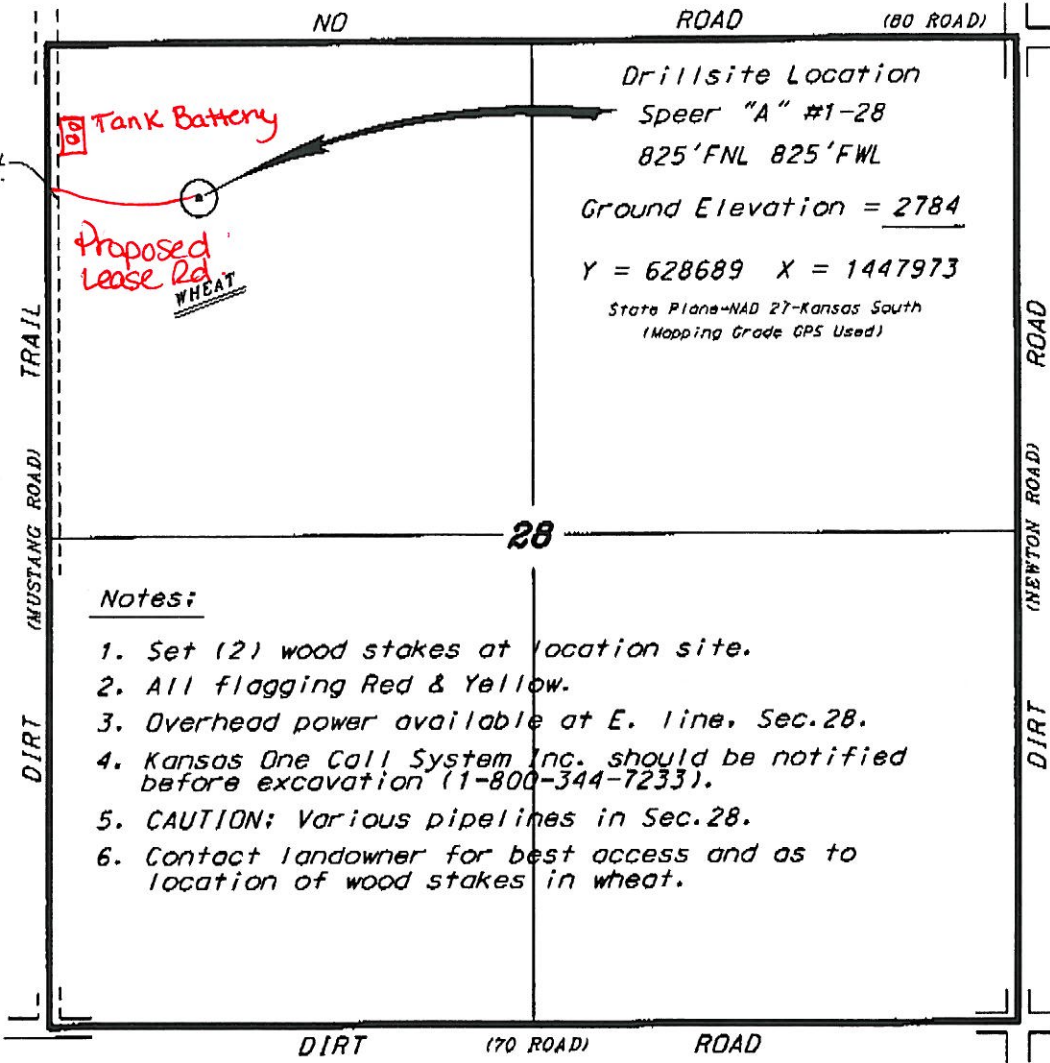 NO ROAD (80 ROAD)
Drillsite Location
Speer "A" #1-28
825'FNL 825'FWL
Ground Elevation = 2784
Y = 628689 X = 1447973
State Plane-NAD 27-Kansas South
(Mapping Grade GPS Used)
Tank Battery
Proposed
Lease Rd.
WHEAT
DIRT (MUSTANG ROAD) TRAIL
DIRT (NEWTON ROAD) ROAD
28
Notes:
1. Set (2) wood stakes at location site.
2. All flagging Red & Yellow.
3. Overhead power available at E. line, Sec.28.
4. Kansas One Call System Inc. should be notified
before excavation (1-800-344-7233).
5. CAUTION: Various pipelines in Sec.28.
6. Contact landowner for best access and as to
location of wood stakes in wheat.
DIRT (70 ROAD) ROAD